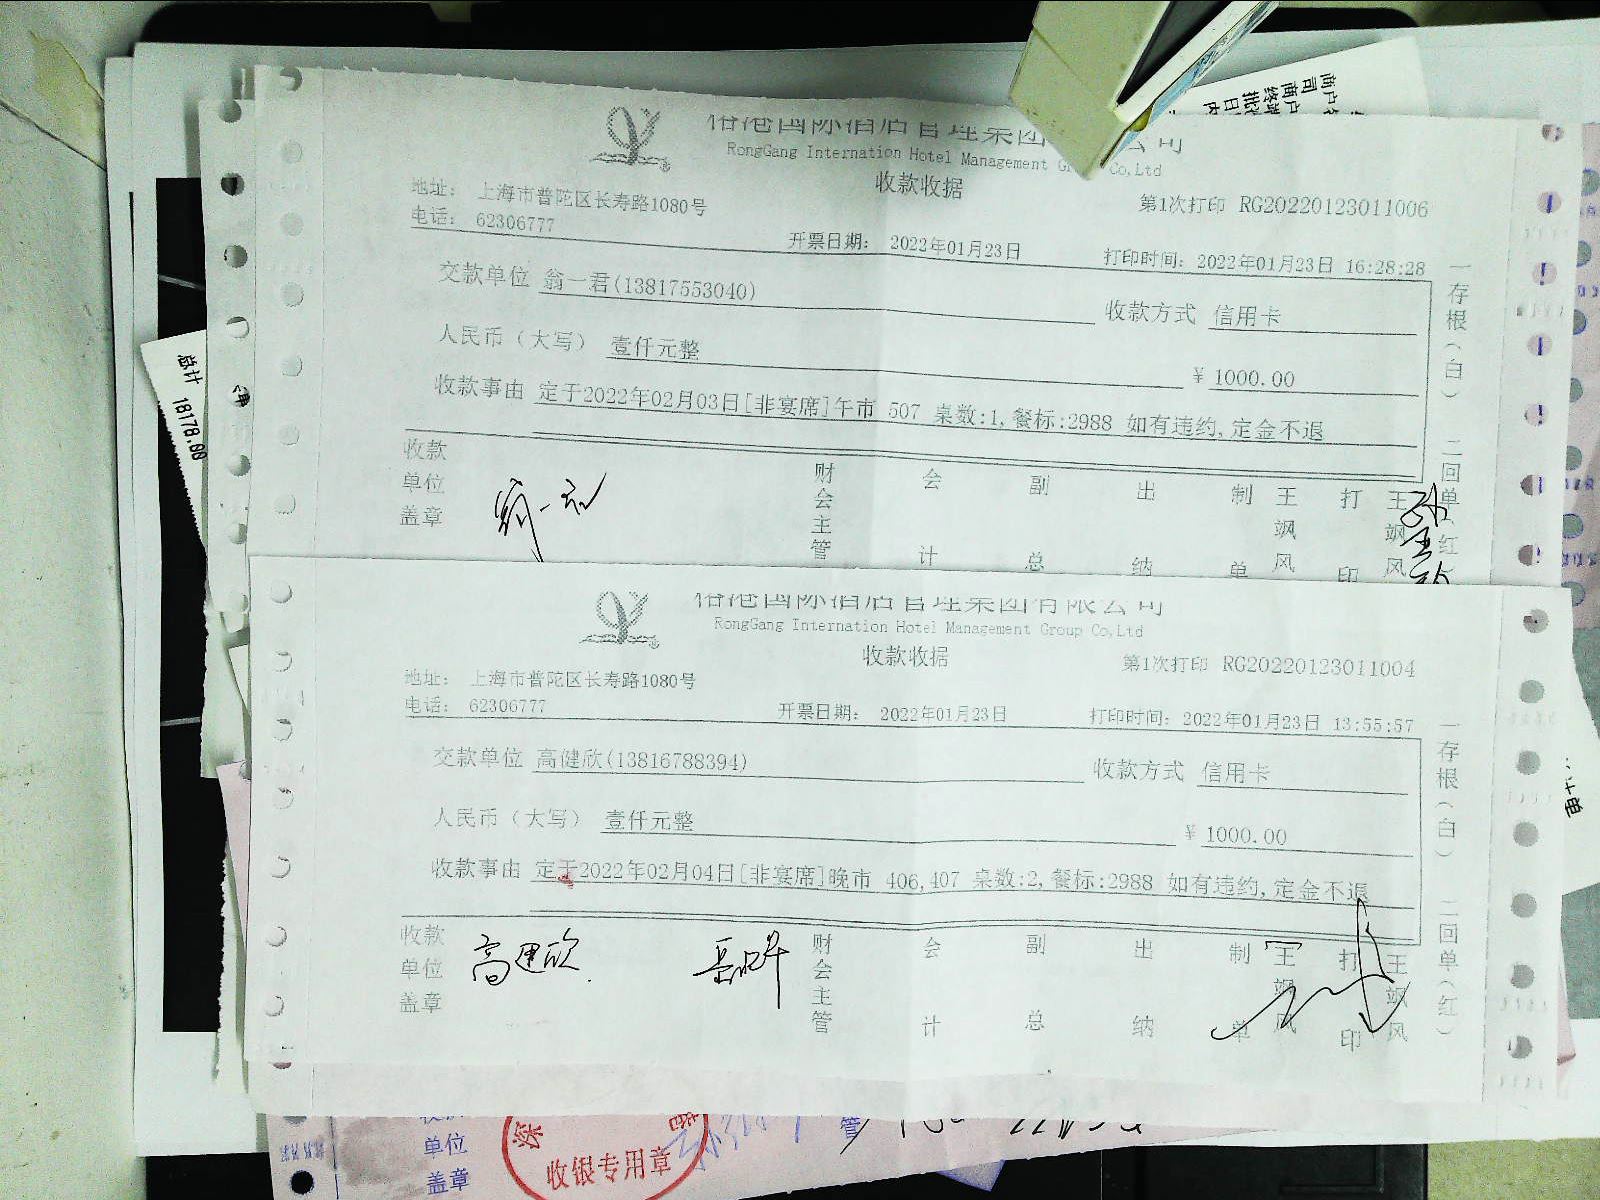 商户名
商户
终端
批次
日期
总计 18178.00
榕港国际酒店管理集团 公司
RongGang Internation Hotel Management Group Co,Ltd
收款收据
地址： 上海市普陀区长寿路1080号
第1次打印 RG20220123011006
电话： 62306777
开票日期： 2022年01月23日
打印时间：2022年01月23日 16:28:28
交款单位 翁一君(13817553040)
收款方式 信用卡
人民币（大写） 壹仟元整
￥1000.00
收款事由 定于2022年02月03日[非宴席]午市 507 桌数:1,餐标:2988 如有违约,定金不退
收款单位盖章
财会主管
会计
副总
出纳
制单 王飒风
打印 王飒风
一存根（白） 二回单（红
榕港国际酒店管理集团有限公司
RongGang Internation Hotel Management Group Co,Ltd
收款收据
第1次打印 RG20220123011004
地址： 上海市普陀区长寿路1080号
电话： 62306777
开票日期： 2022年01月23日
打印时间：2022年01月23日 13:55:57
交款单位 高健欣(13816788394)
收款方式 信用卡
人民币（大写） 壹仟元整
￥1000.00
收款事由 定于2022年02月04日[非宴席]晚市 406,407 桌数:2,餐标:2988 如有违约,定金不退
收款单位盖章
高建欣
财会主管
会计
副总
出纳
制单 王飒风
打印 王飒风
一存根（白） 二回单（红）
单位
盖章
收银专用章
管